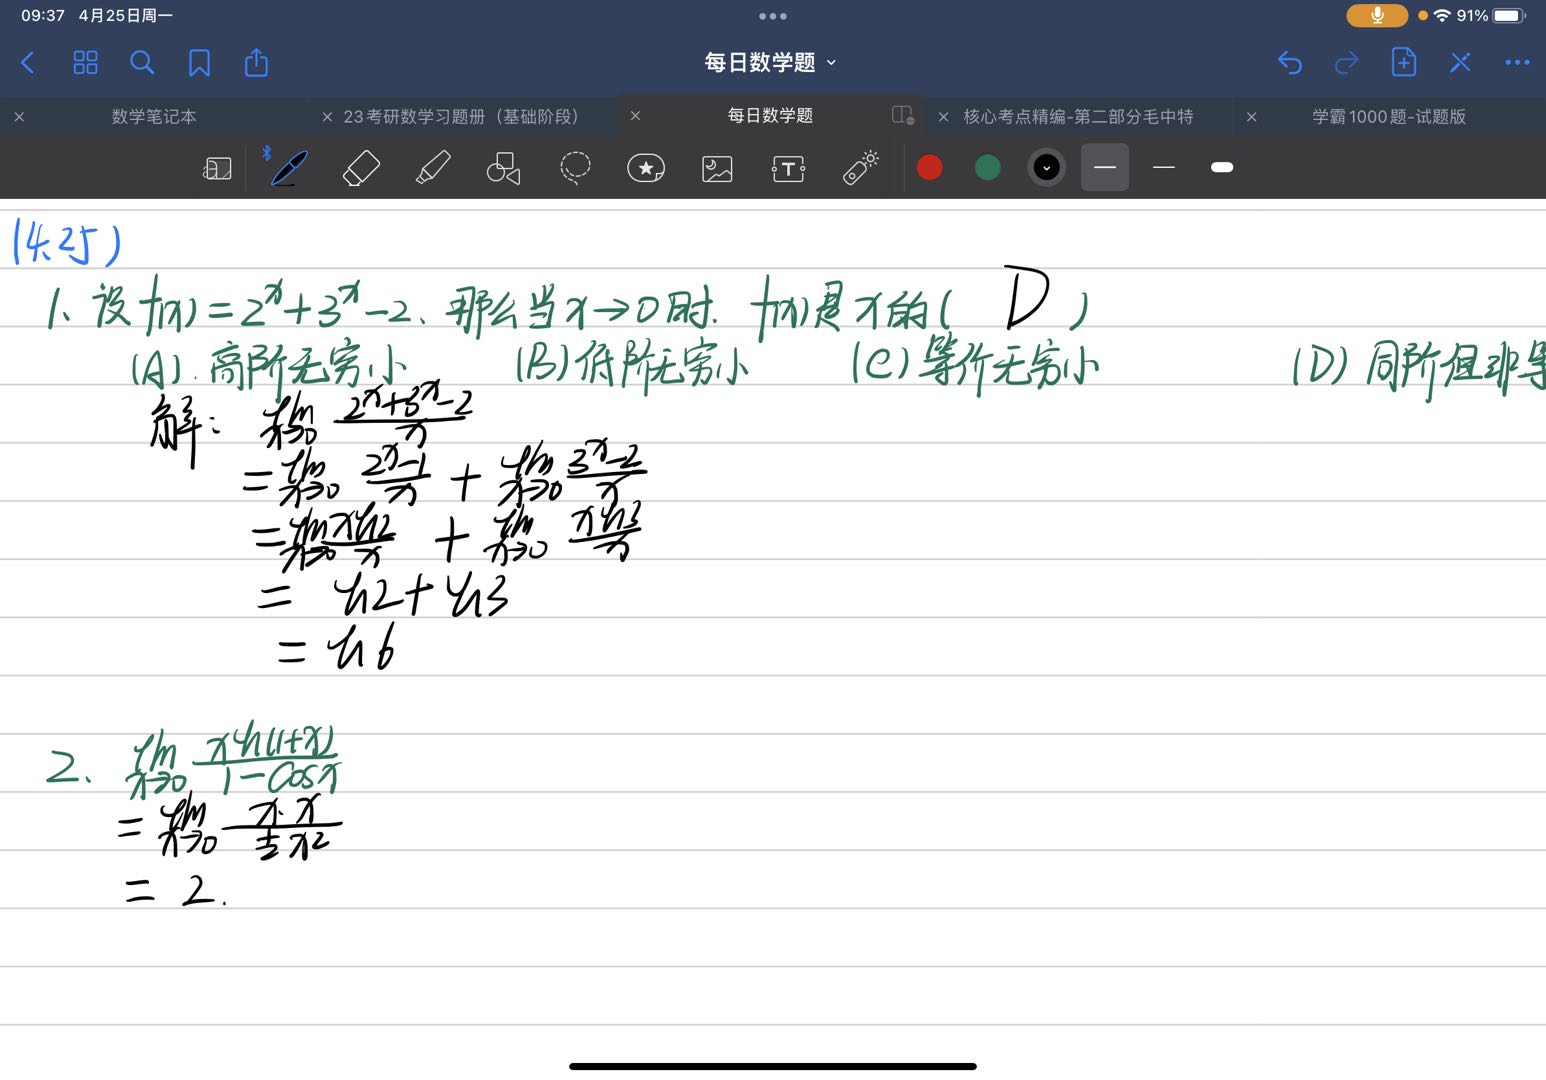 09:37 4月25日周一 91%
每日数学题
数学笔记本 23考研数学习题册（基础阶段） 每日数学题 核心考点精编-第二部分毛中特 学霸1000题-试题版
(4.25)
1、设f(x)=2^x+3^x-2、那么当x→0时. f(x)是x的( D )
(A).高阶无穷小 (B)低阶无穷小 (C)等价无穷小 (D)同阶但非等
解: lim x→0 (2^x+3^x-2)/x
=lim x→0 (2^x-1)/x + lim x→0 (3^x-2)/x
=lim x→0 (xln2)/x + lim x→0 (xln3)/x
= ln2+ln3
= ln6
2、lim x→0 (xln(1+x))/(1-cosx)
=lim x→0 (x·x)/(½x²)
= 2.